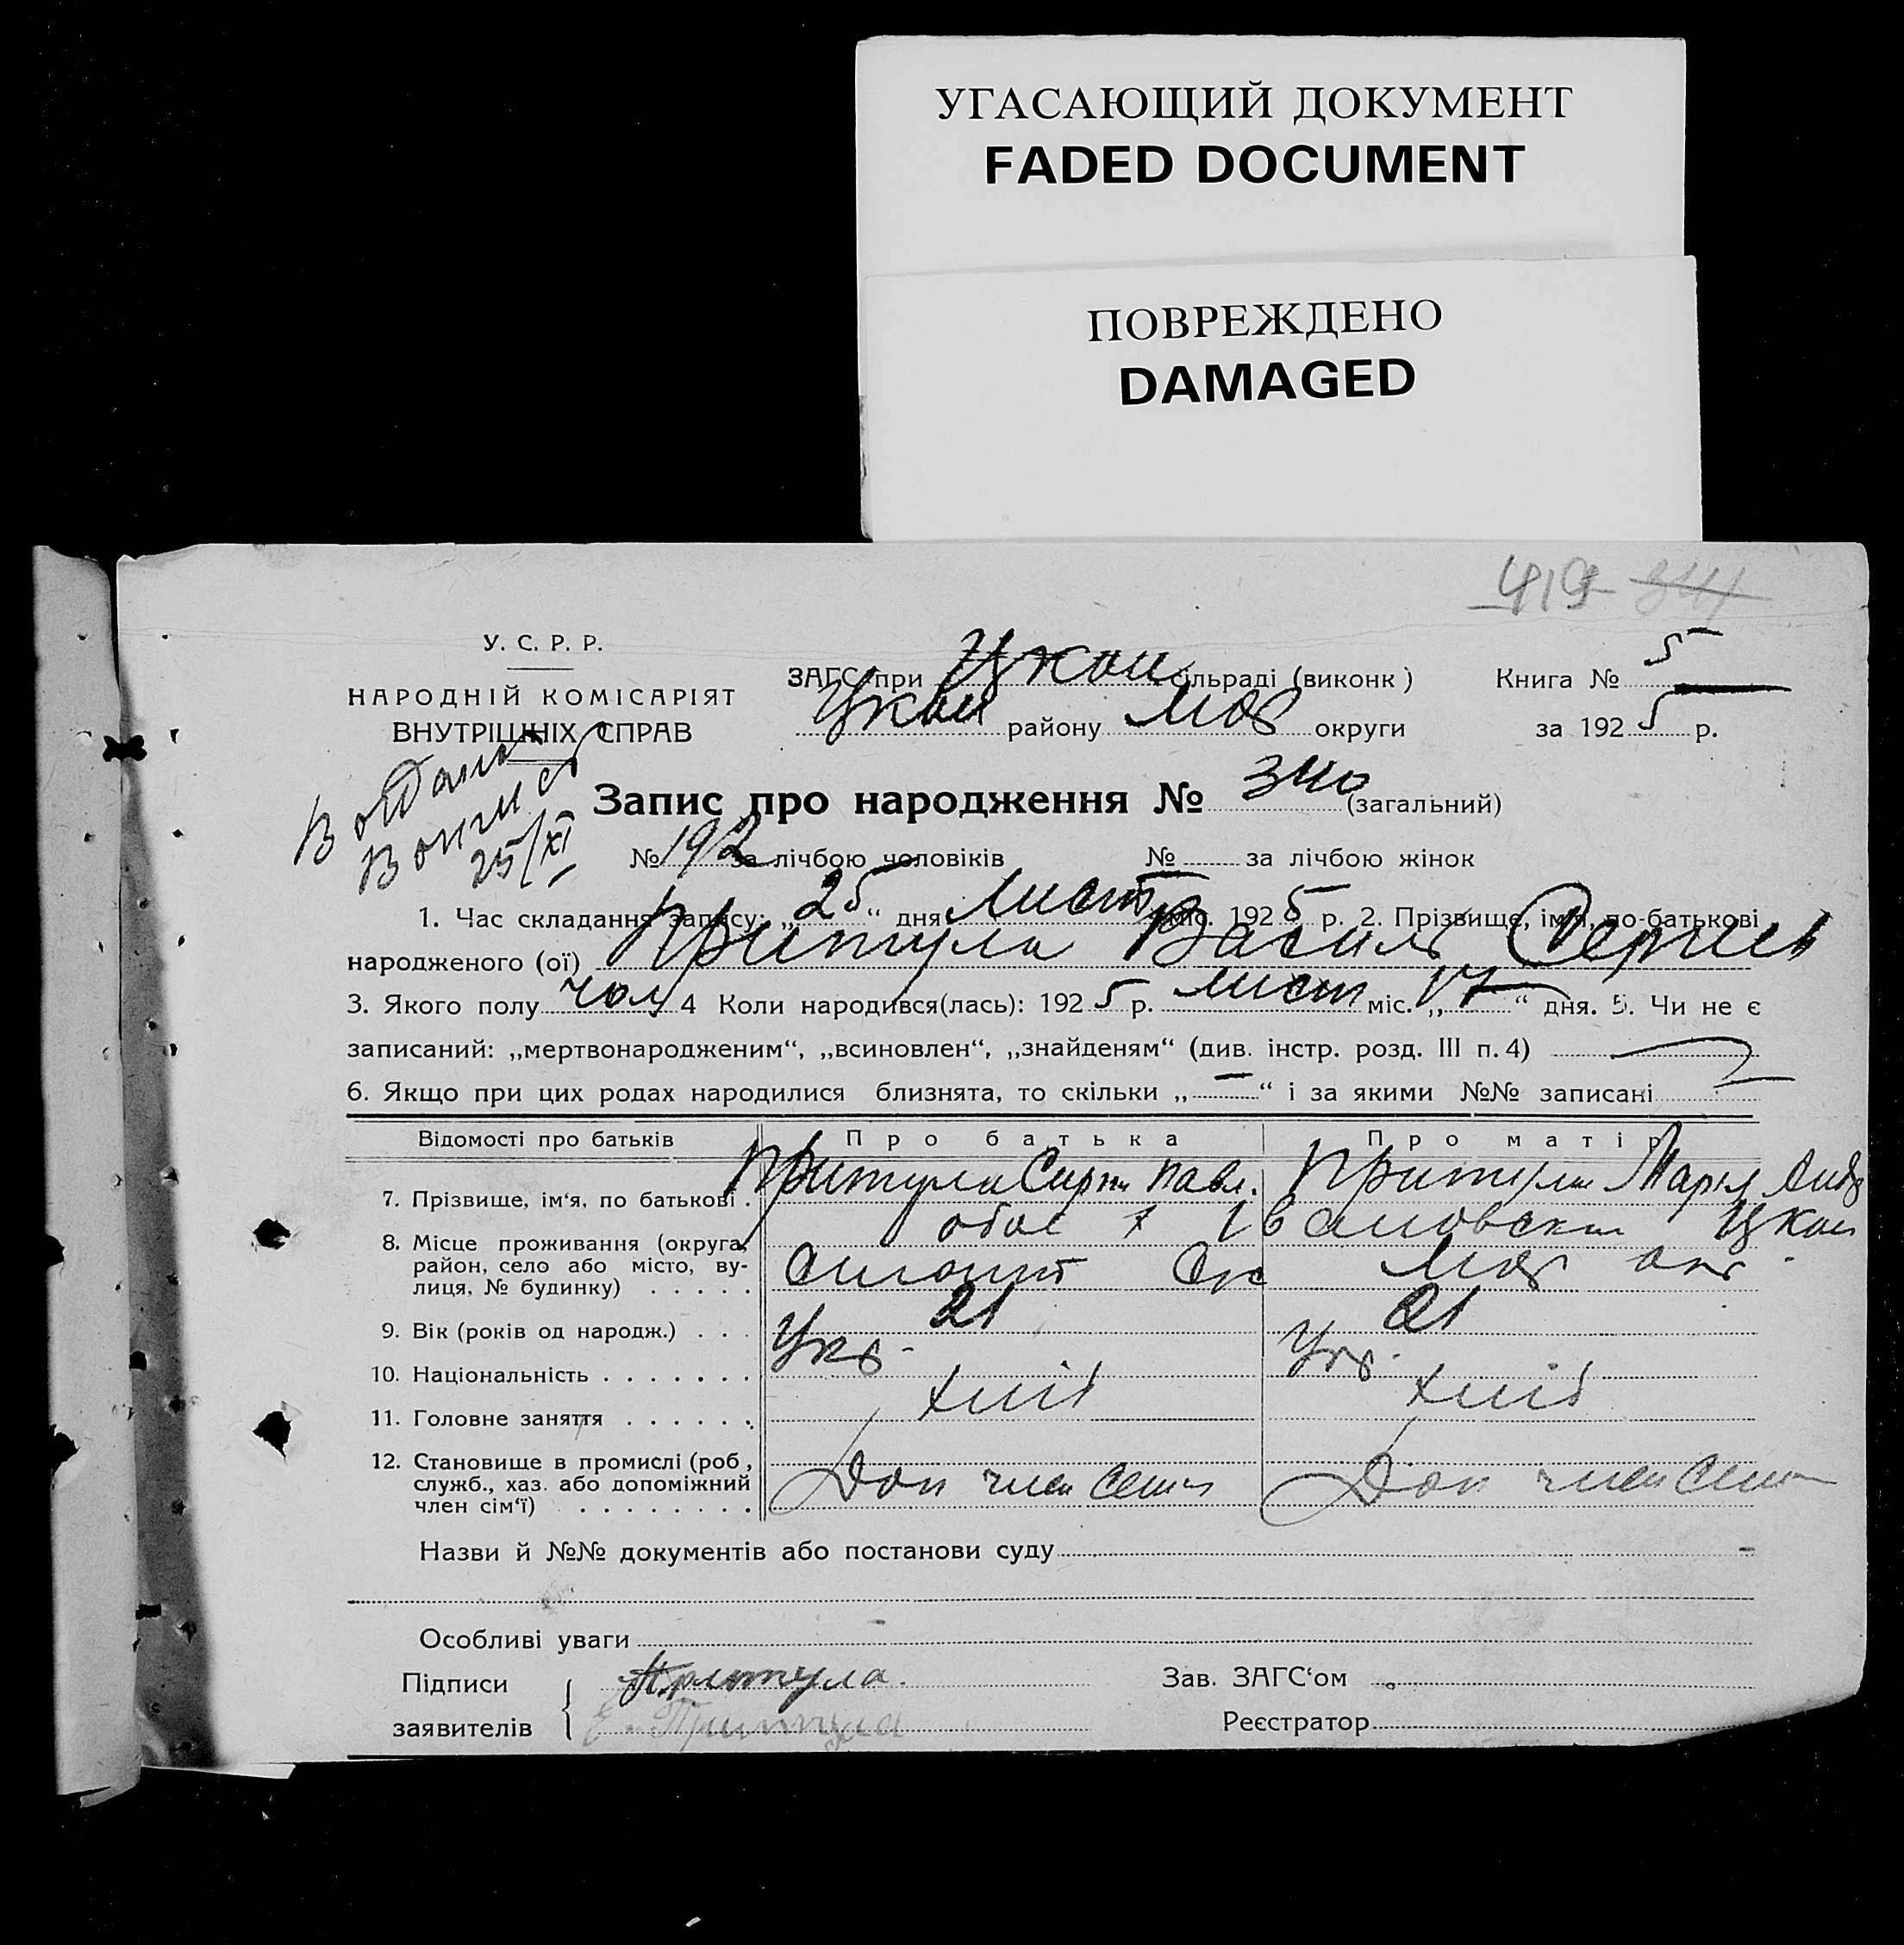 УГАСАЮЩИЙ ДОКУМЕНТ
FADED DOCUMENT
ПОВРЕЖДЕНО
DAMAGED
419 344
У. С. Р. Р.
НАРОДНІЙ КОМІСАРІЯТ
ВНУТРІШНІХ СПРАВ
ЗАГС при Цкои сільраді (виконк ) Книга № 5
Цкои району округи за 1925 р.
25/XI
Запис про народження № 340 (загальний)
№ 192 за лічбою чоловіків № за лічбою жінок
1. Час складання запису: „25“ дня Лист міс. 1925 р. 2. Прізвище, імʼя, по-батькові
народженого (ої) Притула Василь Сергиев
3. Якого полу чол 4 Коли народився(лась): 1925 р. лист міс. „17“ дня. 5. Чи не є
записаний: „мертвонародженим“, „всиновлен“, „знайденям“ (див. інстр. розд. III п. 4)
6. Якщо при цих родах народилися близнята, то скільки „—“ і за якими №№ записані —
Відомості про батьків Про батька Про матір
7. Прізвище, ім‘я, по батькові . Притула Сергій Павл. Притула Марія Анд
8. Місце проживання (округа, обое х Ивановский Цкои
район, село або місто, ву-
лиця, № будинку) . . . . .
9. Вік (років од народж.) . . . 21 21
10. Національність . . . . . . . Укр. Укр.
11. Головне заняття . . . . . . хліб хліб
12. Становище в промислі (роб ,
служб., хаз. або допоміжний Доп член семи Доп член семи
член сім‘ї) . . . . . . . .
Назви й №№ документів або постанови суду —
Особливі уваги
Підписи Притула. Зав. ЗАГС‘ом
заявителів Притула Реєстратор